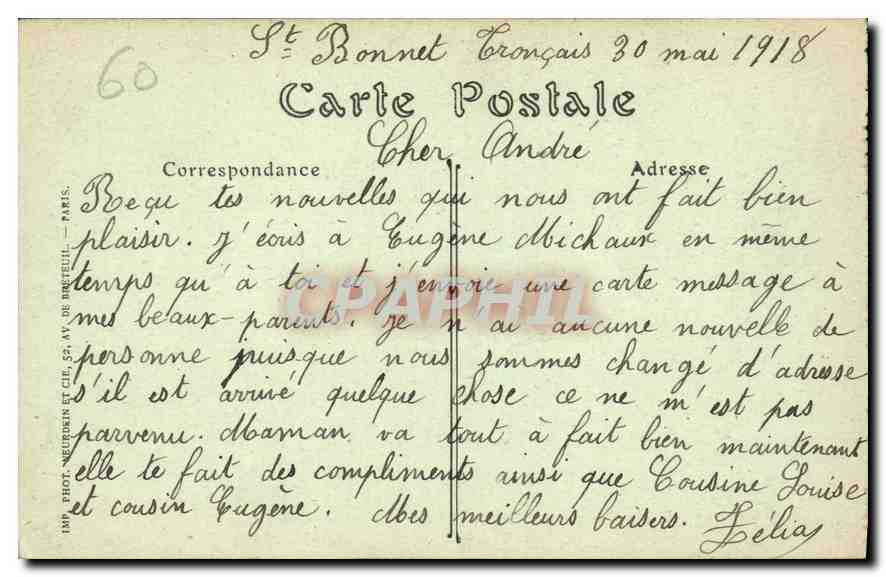 St Bonnet Tronçais 30 mai 1918
60
Carte Postale
Cher André
Correspondance
Adresse
Reçu tes nouvelles qui nous ont fait bien
plaisir. J'écris à Eugène Michaux en même
temps qu'à toi et j'envoie une carte message à
mes beaux-parents. Je n'ai aucune nouvelle de
personne puisque nous sommes changé d'adresse
s'il est arrivé quelque chose ce ne m'est pas
parvenu. Maman va tout à fait bien maintenant
elle te fait des compliments ainsi que Cousine Louise
et cousin Eugène. Mes meilleurs baisers. Zélia
IMP. PHOT. NEURDEIN ET CIE, 52, AV. DE BRETEUIL. — PARIS.
CPAPHIL